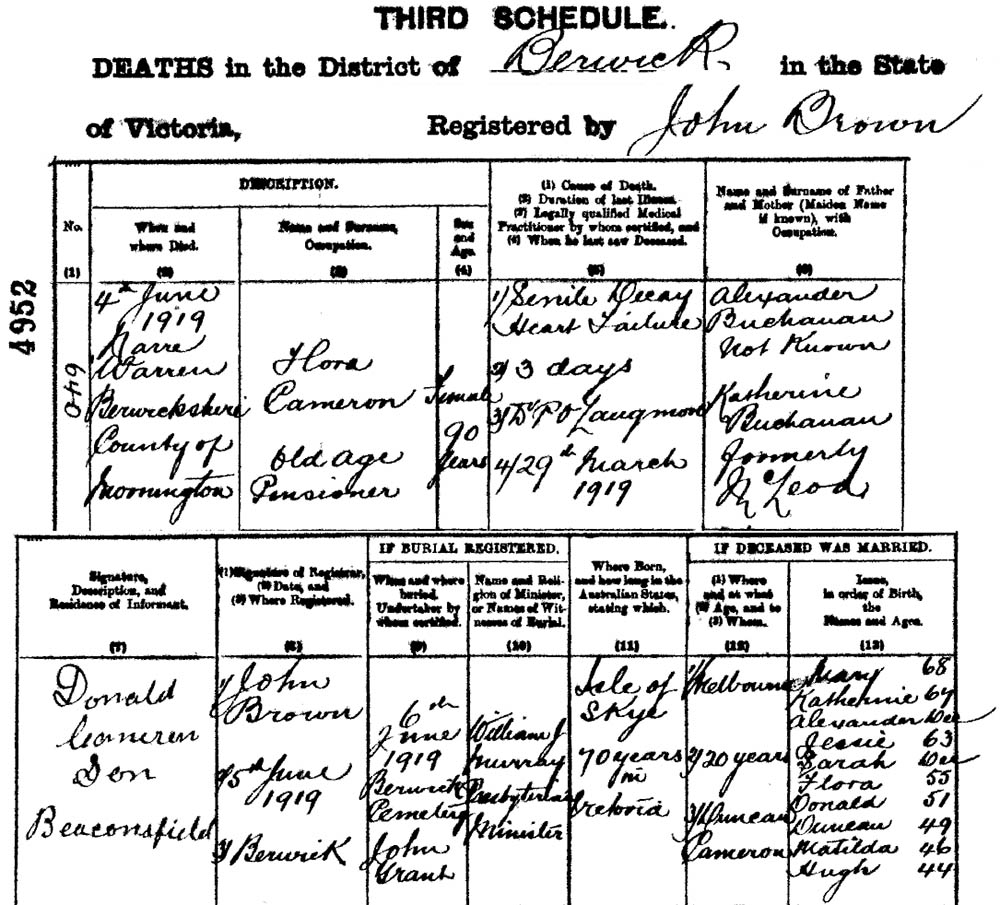 THIRD SCHEDULE.
DEATHS in the District of Berwick in the State
of Victoria, Registered by John Brown
DESCRIPTION.
No.
(1)
When and
where Died.
(2)
Name and Surname,
Occupation.
(3)
Sex
and
Age.
(4)
(1) Cause of Death.
(2) Duration of last Illness.
(3) Legally qualified Medical
Practitioner by whom certified, and
(4) When he last saw Deceased.
(5)
Name and Surname of Father
and Mother (Maiden Name
if known), with
Occupation.
(6)
4952
640
4th June
1919
Narre
Warren
Berwickshire
County of
Mornington
Flora
Cameron
Old Age
Pensioner
Female
90
Years
1/ Senile Decay
Heart Failure
2/ 3 days
3/ Dr P O Langmore
4/ 29th March
1919
Alexander
Buchanan
Not Known
Katherine
Buchanan
formerly
McLeod
Signature,
Description, and
Residence of Informant.
(7)
(1) Signature of Registrar,
(2) Date, and
(3) Where Registered.
(8)
IF BURIAL REGISTERED.
When and where
buried.
Undertaker by
whom certified.
(9)
Name and Reli-
gion of Minister,
or Names of Wit-
nesses of Burial.
(10)
Where Born,
and how long in the
Australian States,
stating which.
(11)
IF DECEASED WAS MARRIED.
(1) Where
and at what
(2) Age, and to
(3) Whom.
(12)
Issue,
in order of Birth,
the
Names and Ages.
(13)
Donald
Cameron
Son
Beaconsfield
1/ John
Brown
2/ 5th June
1919
3/ Berwick
6th
June
1919
Berwick
Cemetery
John
Grant
William J
Murray
Presbyterian
Minister
Isle of
Skye
70 years
in
Victoria
1/ Melbourne
2/ 20 years
3/ Duncan
Cameron
Mary 68
Katherine 64
Alexander Dec
Jessie 63
Sarah Dec
Flora 55
Donald 51
Duncan 49
Matilda 46
Hugh 44